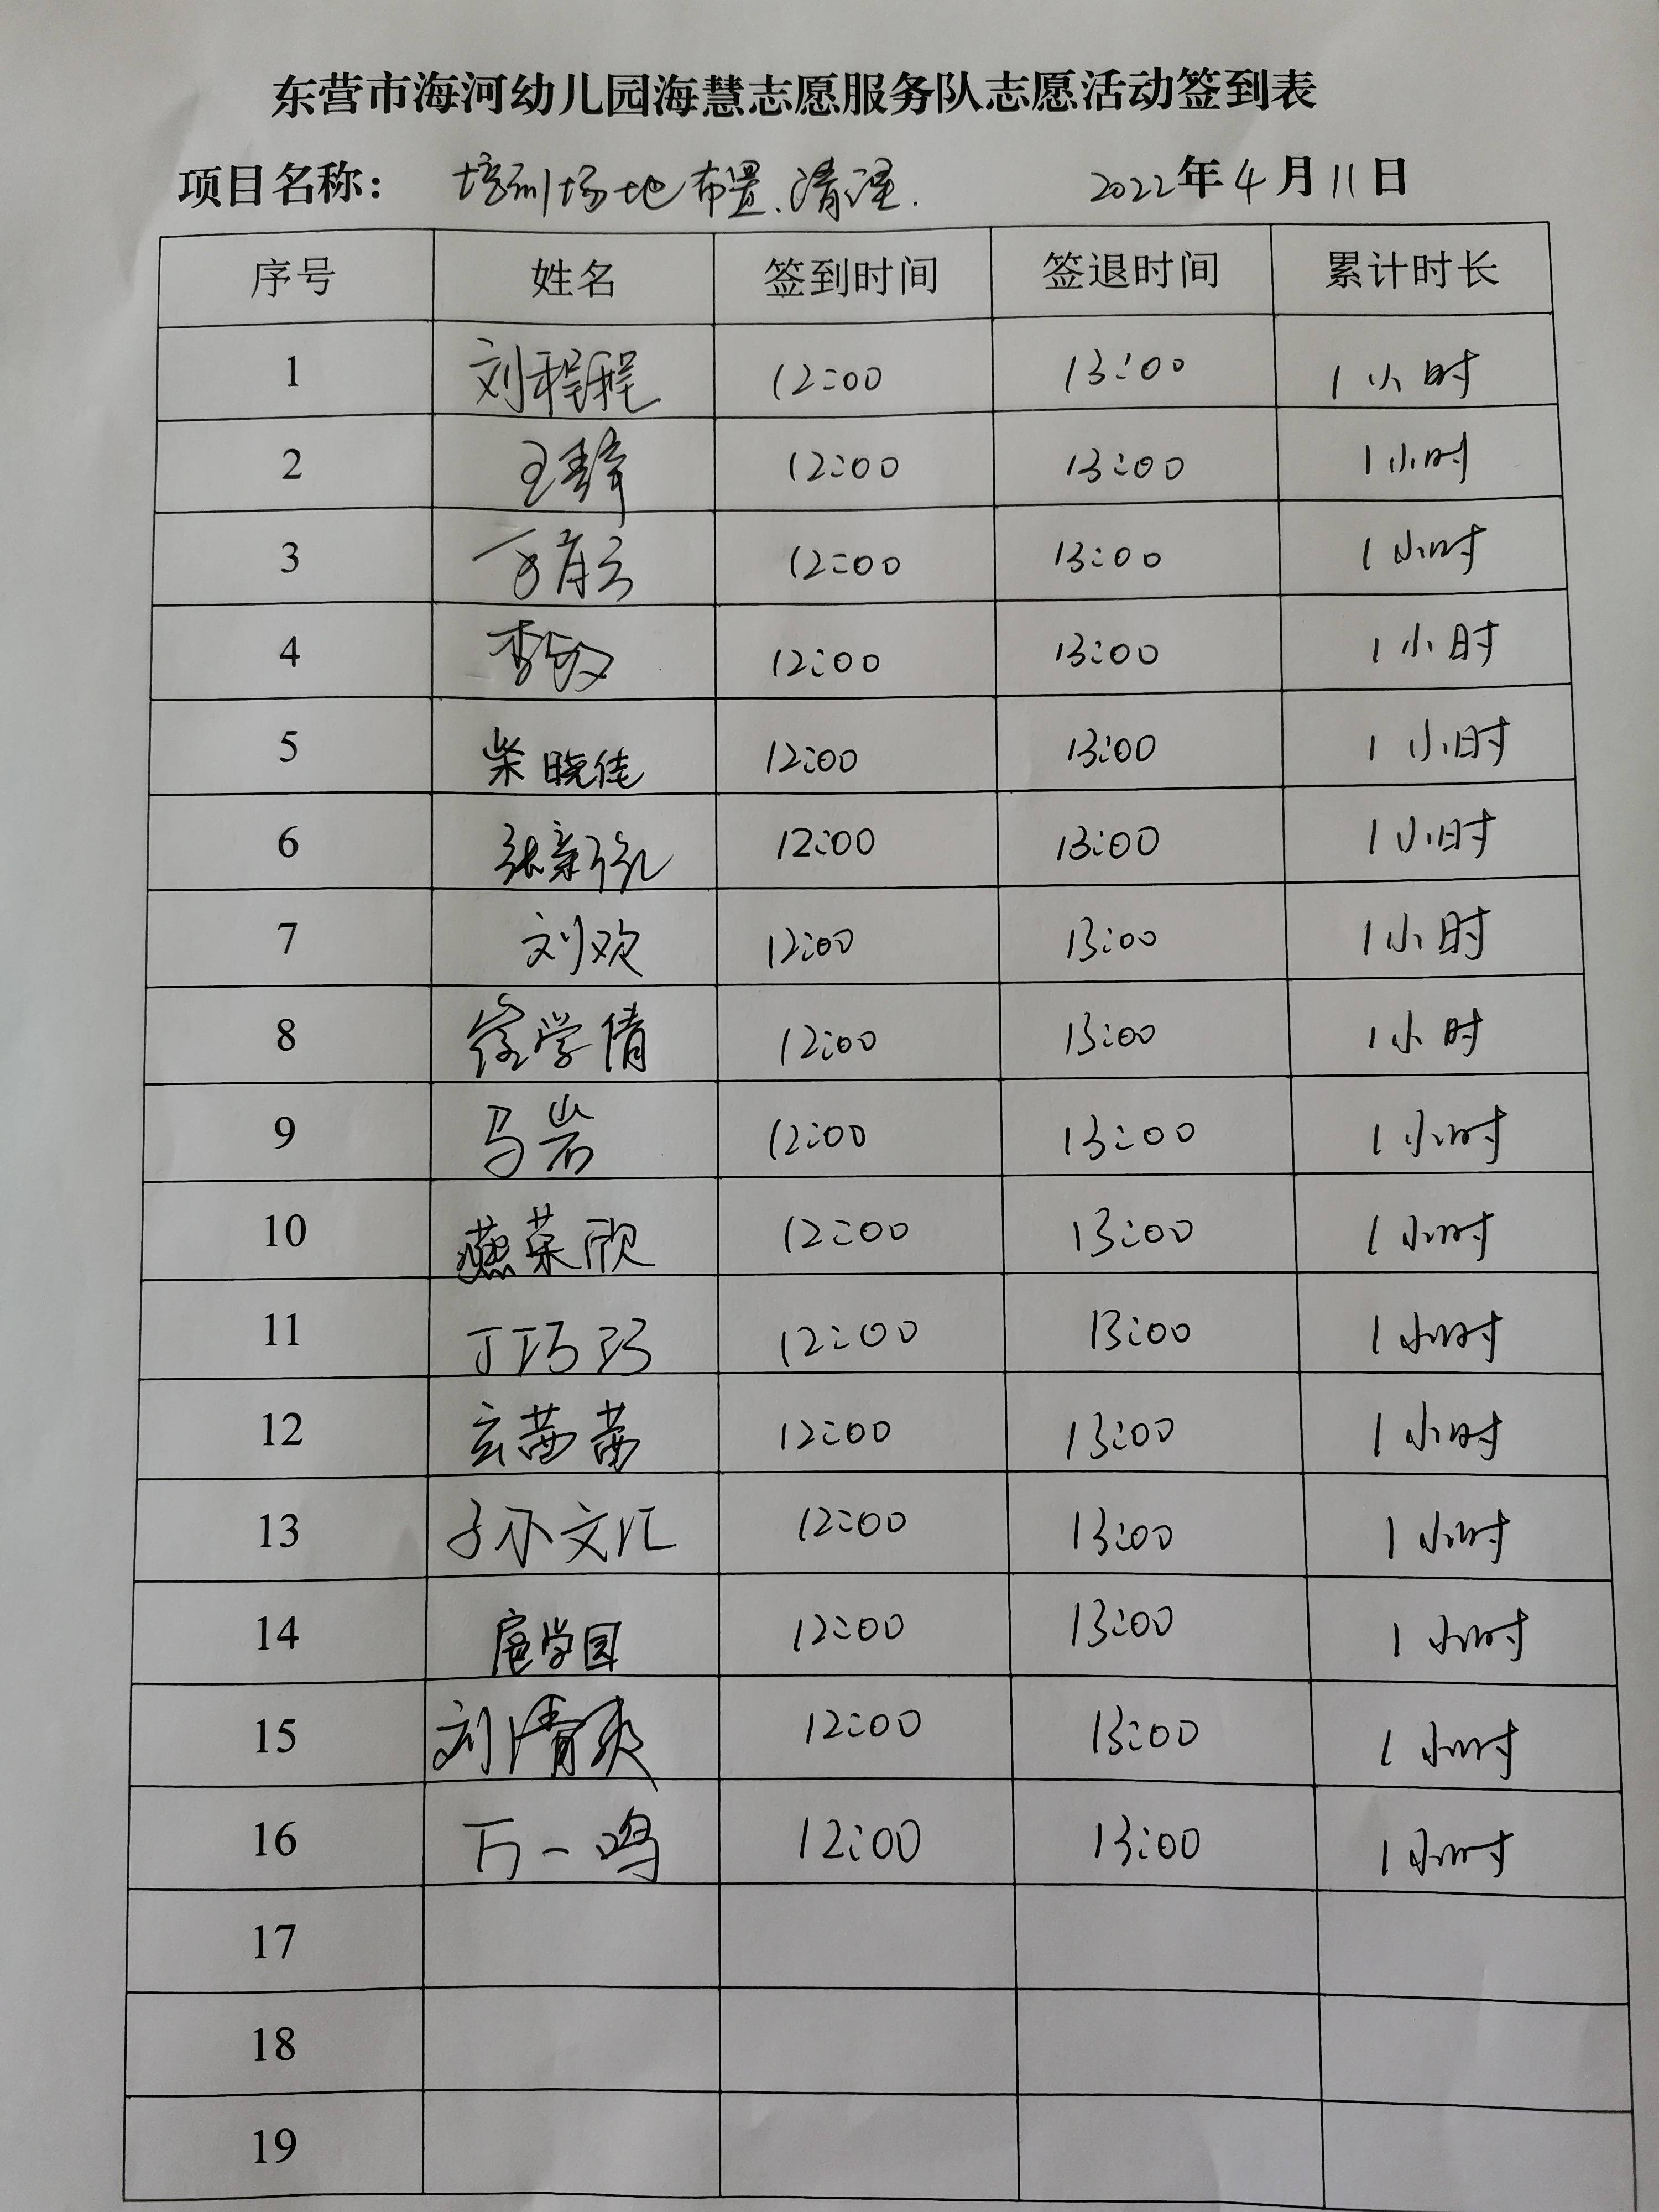 东营市海河幼儿园海慧志愿服务队志愿活动签到表
项目名称： 培训场地布置、清理. 2022年4月11日
序号 姓名 签到时间 签退时间 累计时长
1 刘程程 12:00 13:00 1小时
2 王静 12:00 13:00 1小时
3 12:00 13:00 1小时
4 李敏 12:00 13:00 1小时
5 柴晓佳 12:00 13:00 1小时
6 12:00 13:00 1小时
7 刘欢 12:00 13:00 1小时
8 徐学倩 12:00 13:00 1小时
9 马岩 12:00 13:00 1小时
10 燕荣欣 12:00 13:00 1小时
11 丁巧巧 12:00 13:00 1小时
12 玄茜茜 12:00 13:00 1小时
13 孙文汇 12:00 13:00 1小时
14 扈学园 12:00 13:00 1小时
15 刘清爽 12:00 13:00 1小时
16 万一鸣 12:00 13:00 1小时
17
18
19